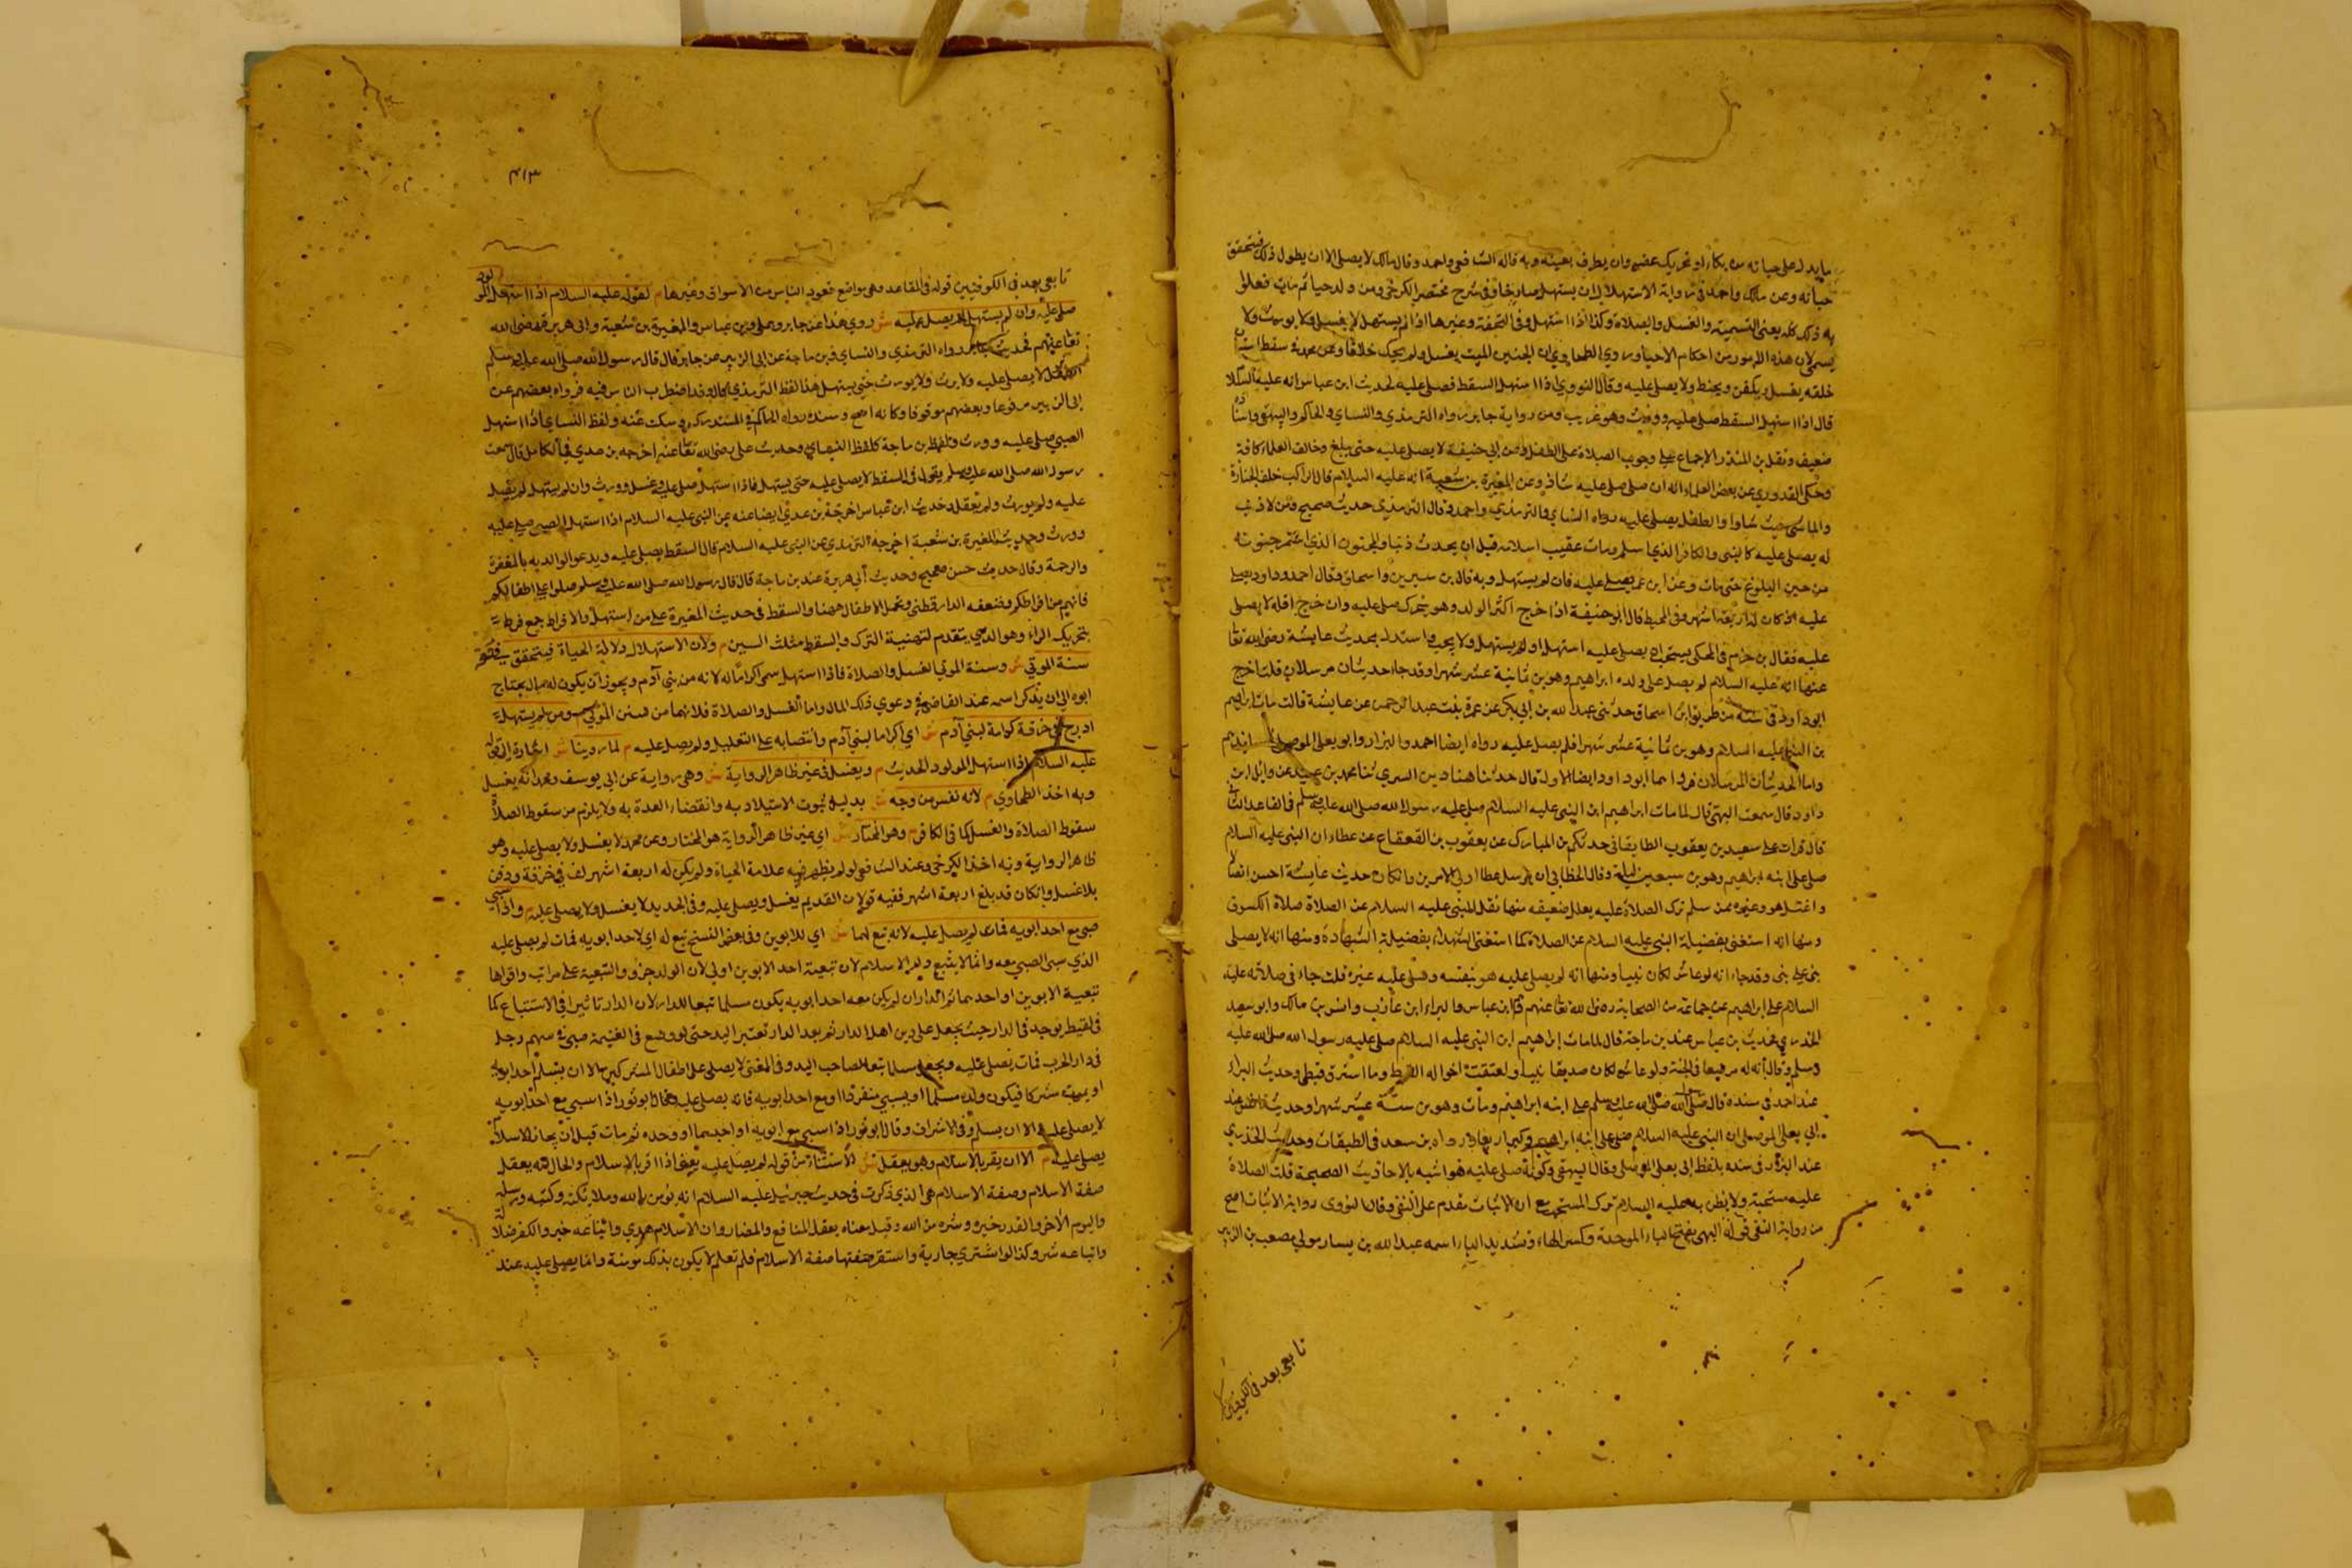 ما يدل على حياته من بكاء او تحريك عضو وان يطرف بعينه وبه قاله الشافعي واحمد وقال مالك لا يصلى الا ان يطول ذلك فيتحقق
حياته وعن مالك واحمد في رواية الاستهلال ان يستهل صارخا وفي شرح مختصر الكرخي ومن ولد حيا ثم مات فعلوا
به ذلك كله يعني التسمية والغسل والصلاة وكذا اذا استهل وفي التحفة وغيرها اذا لم يستهل لا يغسل ولا يورث ولا
يسمى لان هذه الامور من احكام الاحياء وروي الطحاوي ان الجنين الميت يغسل ولم يحك خلافا وعن محمد في سقط استبان
خلقه يغسل ويكفن ويحنط ولا يصلى عليه وقال النووي اذا استهل السقط فصلى عليه لحديث ابن عباس انه عليه السلام
قال اذا استهل السقط صلى عليه وورث وهو غريب ومن رواية جابر رواه الترمذي والنساي والحاكم والبيهقي واسناده
ضعيف ونقل بن المنذر الاجماع على وجوب الصلاة على الطفل وعن ابي حنيفة لا يصلى عليه حتى يبلغ وخالف العلماء كافة
وحكى القدوري عن بعض العلماء انه ان صلى صلى عليه شاذ وعن المغيرة بن شعبة انه عليه السلام قال الراكب خلف الجنازة
والماشي حيث شاوا والطفل يصلى عليه رواه النساي والترمذي واحمد وقال الترمذي حديث صحيح ومن لا ذنب
له يصلى عليه كالنبي والكافر الذي اسلم ومات عقيب اسلامه قبل ان يحدث ذنبا والمجنون الذي استمر جنونه
من حين البلوغ حتى مات وعن ابن عمر يصلى عليه فان لم يستهل وبه قال بن سيرين واسحاق وقال احمد وداود يصلى
عليه اذا كان له اربعة اشهر وفي المحيط قال ابو حنيفة اذا خرج اكثر الولد وهو يتحرك صلى عليه وان خرج اقله لا يصلى
عليه فقال بن حزم في المحلى يستحب ان يصلى عليه استهل او لم يستهل ولا يجب واستدل بحديث عايشة رضي الله تعالى
عنها انه عليه السلام لم يصل على ولده ابراهيم وهو بن ثمانية عشر شهرا وقد جاء حديثان مرسلان قلت اخرج
ابوداود في سننه من طريق ابن اسحاق حدثني عبد الله بن ابي بكر عن عمرة بنت عبد الرحمن عن عايشة قالت مات ابراهيم
بن النبي عليه السلام وهو بن ثمانية عشر شهرا فلم يصل عليه رواه ايضا احمد والبزار وابو يعلى الموصلي
واما الحديثان المرسلان فرواهما ابو داود ايضا الاول قال حدثنا هناد بن السري ثنا محمد بن عبيد عن وائل بن
داود قال سمعت البهي قال لما مات ابراهيم ابن النبي عليه السلام صلى عليه رسول الله صلى الله عليه وسلم في المقاعد الثاني
قال قرات على سعيد بن يعقوب الطالقاني حدثكم بن المبارك عن يعقوب بن القعقاع عن عطاء ان النبي عليه السلام
صلى على ابنه ابراهيم وهو بن سبعين ليلة وقال الخطابي ان مرسل عطا اولى الامرين وان كان حديث عايشة احسن اتصالا
واعتل هو وغيره ممن سلم ترك الصلاة عليه بعلل ضعيفه منها شغل النبي عليه السلام عن الصلاة صلاة الكسوف
ومنها انه استغنى بفضيلة النبي عليه السلام عن الصلاة كما استغنى الشهداء بفضيلة الشهادة ومنها انه لا يصلى
نبي على نبي وقد جاء انه لو عاش لكان نبيا ومنها انه لم يصل عليه هو بنفسه وصلى عليه غيره قلت جاء في صلاته عليه
السلام على ابراهيم عن جماعة من الصحابة رضي الله تعالى عنهم كابن عباس والبراء ابن عازب وانس بن مالك وابو سعيد
الخدري فحديث بن عباس عند بن ماجة قال لما مات ابراهيم ابن النبي عليه السلام صلى عليه رسول الله صلى الله عليه
وسلم وقال انه له مرضعا في الجنة ولو عاش لكان صديقا نبيا ولعتقت اخواله القبط وما استرق قبطي وحديث البراء
عند احمد في سنده قال صلى رسول الله صلى الله عليه وسلم على ابنه ابراهيم ومات وهو بن ستة عشر شهرا وحديث انس عند
ابي يعلى الموصلي ان النبي عليه السلام صلى على ابنه ابراهيم وكبر اربعا رواه بن سعد في الطبقات وحديث الخدري
عند البزار في سنده بلفظ ابي يعلى الموصلي وقال البيهقي وكونه صلى عليه هو اشبه بالاحاديث الصحيحة قلت الصلاة
عليه مستحبة ولا يظن به عليه السلام ترك المستحب مع ان الاثبات مقدم على النفي وقال النووي رواية الاثبات اصح
من رواية النفي قوله البهي بفتح الباء الموحدة وكسر الهاء وتشديد الياء اسمه عبد الله بن يسار مولى مصعب بن الزبير
تابعي يعد في الكوفيين
٤١٣
تابعي يعد في الكوفيين قوله في المقاعد وهي مواضع قعود الناس من الاسواق وغيرها م لقوله عليه السلام اذا استهل المولود
صلي عليه وان لم يستهل لم يصل عليه ش روي هذا عن جابر وعلي وبن عباس والمغيرة بن شعبة وابي هريرة رضي الله
تعالى عنهم فحديث جابر رواه الترمذي والنساي وبن ماجة عن ابي الزبير عن جابر قال قال رسول الله صلى الله عليه وسلم
الطفل لا يصلى عليه ولا يرث ولا يورث حتى يستهل هذا لفظ الترمذي قال وقد اضطرب الناس فيه فرواه بعضهم عن
ابي الزبير مرفوعا وبعضهم موقوفا وكانه اصح وسنده رواه الحاكم في المستدرك وسكت عنه ولفظ النساي اذا استهل
الصبي صلى عليه وورث ولفظ بن ماجة كلفظ النساي وحديث علي رضي الله تعالى عنه اخرجه بن عدي في الكامل قال سمعت
رسول الله صلى الله عليه وسلم يقول في السقط لا يصلى عليه حتى يستهل فاذا استهل صلى عليه وغسل وورث وان لم يستهل لم يصل
عليه ولم يورث ولم يعقل وحديث ابن عباس اخرجه بن عدي ايضا عنه عن النبي عليه السلام اذا استهل الصبي صلى عليه
وورث وحديث المغيرة بن شعبة اخرجه الترمذي عن النبي عليه السلام قال السقط يصلى عليه ويدعو لوالديه بالمغفرة
والرحمة وقال حديث حسن صحيح وحديث ابي هريرة عند بن ماجة قال قال رسول الله صلى الله عليه وسلم صلوا على اطفالكم
فانهم من افراطكم وضعفه الدارقطني وتحمل الاطفال ههنا والسقط في حديث المغيرة على من استهل والافراط جمع فرط
بتحريك الراء وهو الذي يتقدم لتهيئة النزل والسقط مثلث السين م ولان الاستهلال دلالة الحياة فيتحقق في حقه
سنة الموتى ش وسنة الموتى الغسل والصلاة فاذا استهل سمى اكراما له لانه من بني آدم ويجوز ان يكون له مال يحتاج
ابوه الى ان يذكر اسمه عند القاضي في دعوي ذلك المال واما الغسل والصلاة فلانهما من سنن الموتى م ومن لم يستهل
ادرج في خرقة كرامة لبني آدم ش اي اكراما لبني آدم وانتصابه على التعليل ولم يصل عليه م لما روينا ش اشارة الى قوله
عليه السلام اذا استهل المولود الحديث م ويغسل في غير ظاهر الرواية ش وهي رواية عن ابي يوسف ومحمد انه يغسل
وبه اخذ الطحاوي م لانه نفس من وجه ش بدليل ثبوت الاستيلاد به وانقضاء العدة به ولا يلزم من سقوط الصلاة
سقوط الصلاة والغسل كما في الكافر م وهو المختار ش اي غير ظاهر الرواية هو المختار وعن محمد لا يغسل ولا يصلى عليه وهو
ظاهر الرواية وبه اخذ الكرخي وعند الشافعي لو لم يظهر فيه علامة الحياة ولم يكن له اربعة اشهر لف في خرقة ودفن
بلا غسل وان كان قد بلغ اربعة اشهر ففيه قولان القديم يغسل ويصلى عليه وفي الجديد لا يغسل ولا يصلى عليه م واذا سبي
صبي مع احد ابويه فمات لم يصل عليه لانه تبع لهما ش اي للابوين وفي بعض النسخ تبع له اي لاحد ابويه فمات لم يصل عليه
الذي سبي الصبي معه وانما لا يتبع دار الاسلام لان تبعية احد الابوين اولى لان الولد جزؤ والتبعية على مراتب واقواها
تبعية الابوين او احدهما ثم الدار ان لم يكن معه احد ابويه يكون مسلما تبعا للدار لان الدار تاثيرا في الاستتباع كما
في لقيط يوجد في الدار حيث يجعل على دين اهل الدار ثم بعد الدار تعتبر اليد حتى لو وقع في الغنيمة صبي في سهم رجل
في دار الحرب فمات يصلى عليه ويجعل مسلما تبعا لصاحب اليد وفي المغني لا يصلى على اطفال المشركين الا ان يسلم احد ابويه
او يموت مشركا فيكون ولده مسلما او يسبي منفردا او مع احد ابويه فانه يصلى عليه وقال ابو ثور اذا سبي مع احد ابويه
لا يصلى عليه الا ان يسلم وفي الاشراف وقال ابو ثور اذا سبي مع ابويه او احدهما او وحده ثم مات قبل ان يختار الاسلام
يصلى عليه م الا ان يقر بالاسلام وهو يعقل ش الاستثناء من قوله لم يصل عليه يعني اذا اقر بالاسلام والحال انه يعقل
صفة الاسلام وصفة الاسلام هي الذي ذكرت في حديث جبرئيل عليه السلام انه يؤمن بالله وملائكته وكتبه ورسله
واليوم الآخر والقدر خيره وشره من الله وقيل معناه يعقل المنافع والمضار وان الاسلام هدي واتباعه خير والكفر ضلالة
واتباعه شر وكذا لو اشتري جارية واستقر صفتها صفة الاسلام فلم تعلم لا يكون بذلك مؤمنة وانما يصلى عليه عند